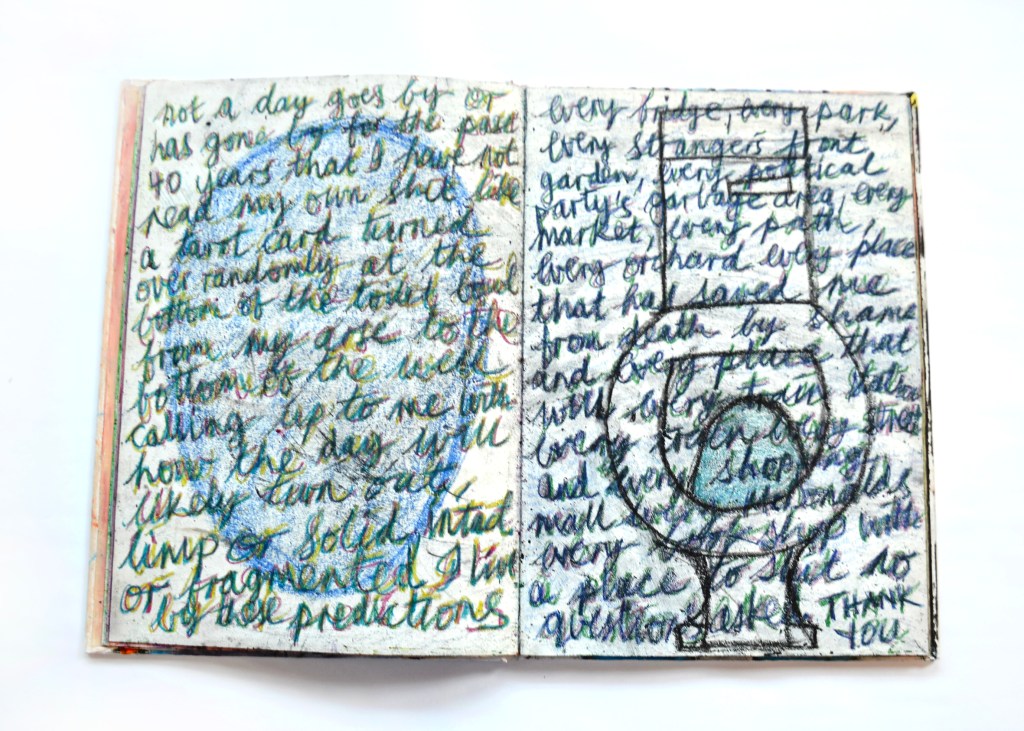 not a day goes by or
has gone by for the past
40 years that I have not
read my own shit like
a tarot card turned
over randomly at the
bottom of the toilet bowl
from my gate to the
bottom of the well
calling up to me with
how the day will
likely turn out,
limp or solid intact
or fragmented I live
by these predictions
every bridge, every park,
every strangers front
garden, every political
party's garbage area, every
market, every path,
every orchard every place
that has saved me
from death by shame
and every place that
will every train station
every every street
and every shop
mall every McDonalds
every shop with
a place to shit no
questions asked THANK
YOU